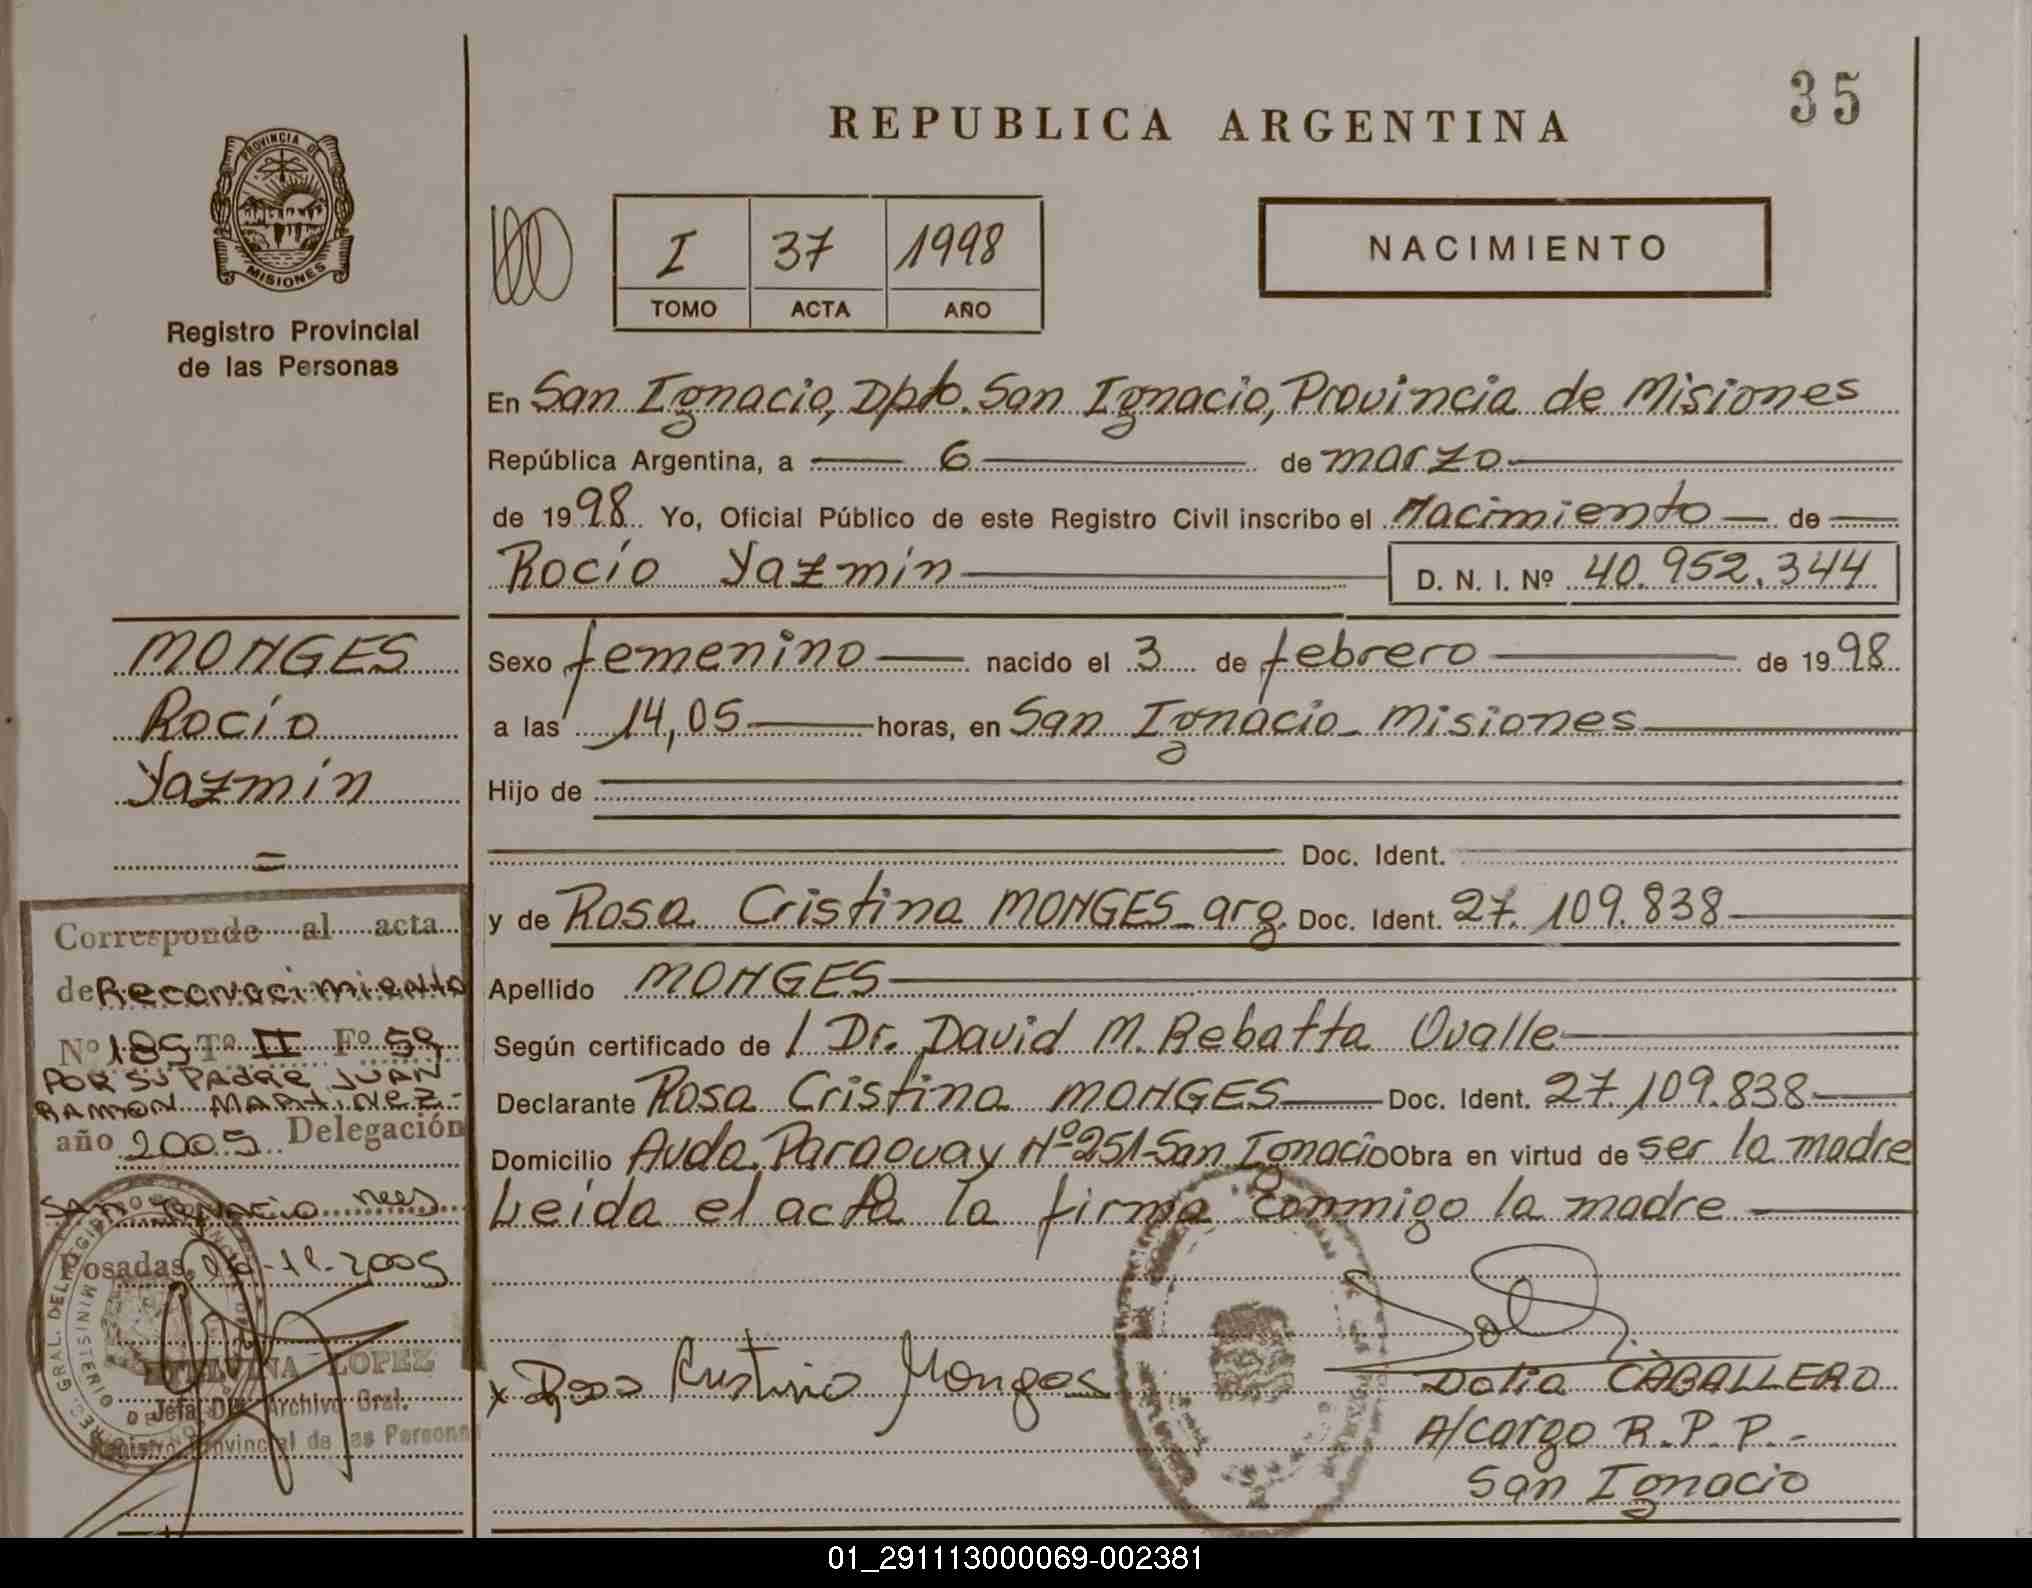 35
REPUBLICA ARGENTINA
PROVINCIA DE
MISIONES
Registro Provincial
de las Personas
I 37 1998
TOMO ACTA AÑO
NACIMIENTO
En San Ignacio, Dpto. San Ignacio, Provincia de Misiones
República Argentina, a 6 de marzo
de 1998 Yo, Oficial Público de este Registro Civil inscribo el Nacimiento de
Rocío Yazmín D. N. I. Nº 40.952.344
MONGES
Rocío
Yazmín
=
Sexo femenino nacido el 3 de febrero de 1998
a las 14,05 horas, en San Ignacio - Misiones
Hijo de
Doc. Ident.
y de Rosa Cristina MONGES - arg. Doc. Ident. 27.109.838
Apellido MONGES
Según certificado de l Dr. David M. Rebatta Ovalle
Declarante Rosa Cristina MONGES Doc. Ident. 27.109.838
Domicilio Avda. Paraguay Nº 251 - San Ignacio Obra en virtud de ser la madre
Leída el acta la firma conmigo la madre
Corresponde al acta
de Reconocimiento
Nº 185 Tº II Fº 59
POR SU PADRE JUAN
RAMON MARTINEZ.-
año 2005 Delegación
SAN IGNACIO Mnes
Posadas, -11-2005
LOPEZ
Jefa Archivo Gral.
Registro Provincial de las Personas
x Rosa Cristina Monges
Delia CABALLERO
A/cargo R.P.P.-
San Ignacio
01_291113000069-002381